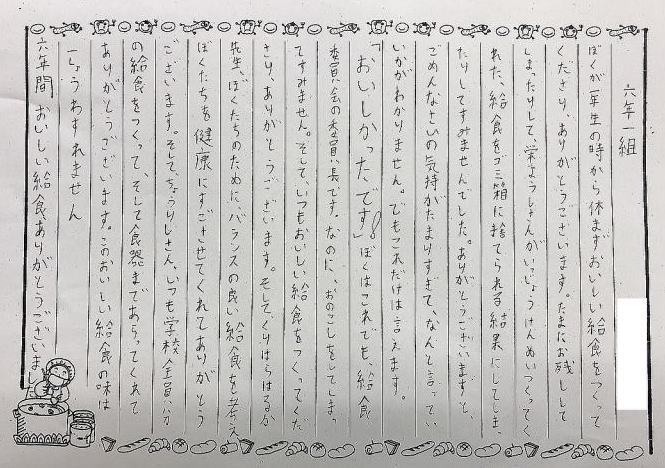 六年一組
ぼくが一年生の時から休まずおいしい給食をつくって
くださり、ありがとうございます。たまにお残しして
しまったりして、栄ようしさんがいっしょうけんめいつくってく
れた、給食をゴミ箱に捨てられる結果にしてしまっ
たりしてすみませんでした。ありがとうございますと、
ごめんなさいの気持がたまりすぎて、なんと言ってい
いかがわかりません。でもこれだけは言えます。
「おいしかったです」!!ぼくはこれでも、給食
委員会の委員長です。なのに、おのこしをしてしまっ
てすみません。そして、いつもおいしい給食をつくってくだ
さり、ありがとうございます。そして、くりはらはるか
先生、ぼくたちのために、バランスの良い給食を考え
ぼくたちを健康にすごさせてくれてありがとう
ございます。そして、ちょうりしさん、いつも学校全員分
の給食をつくって、そして食器まであらってくれて
ありがとうございます。このおいしい給食の味は
一しょうわすれません
六年間おいしい給食ありがとうございました